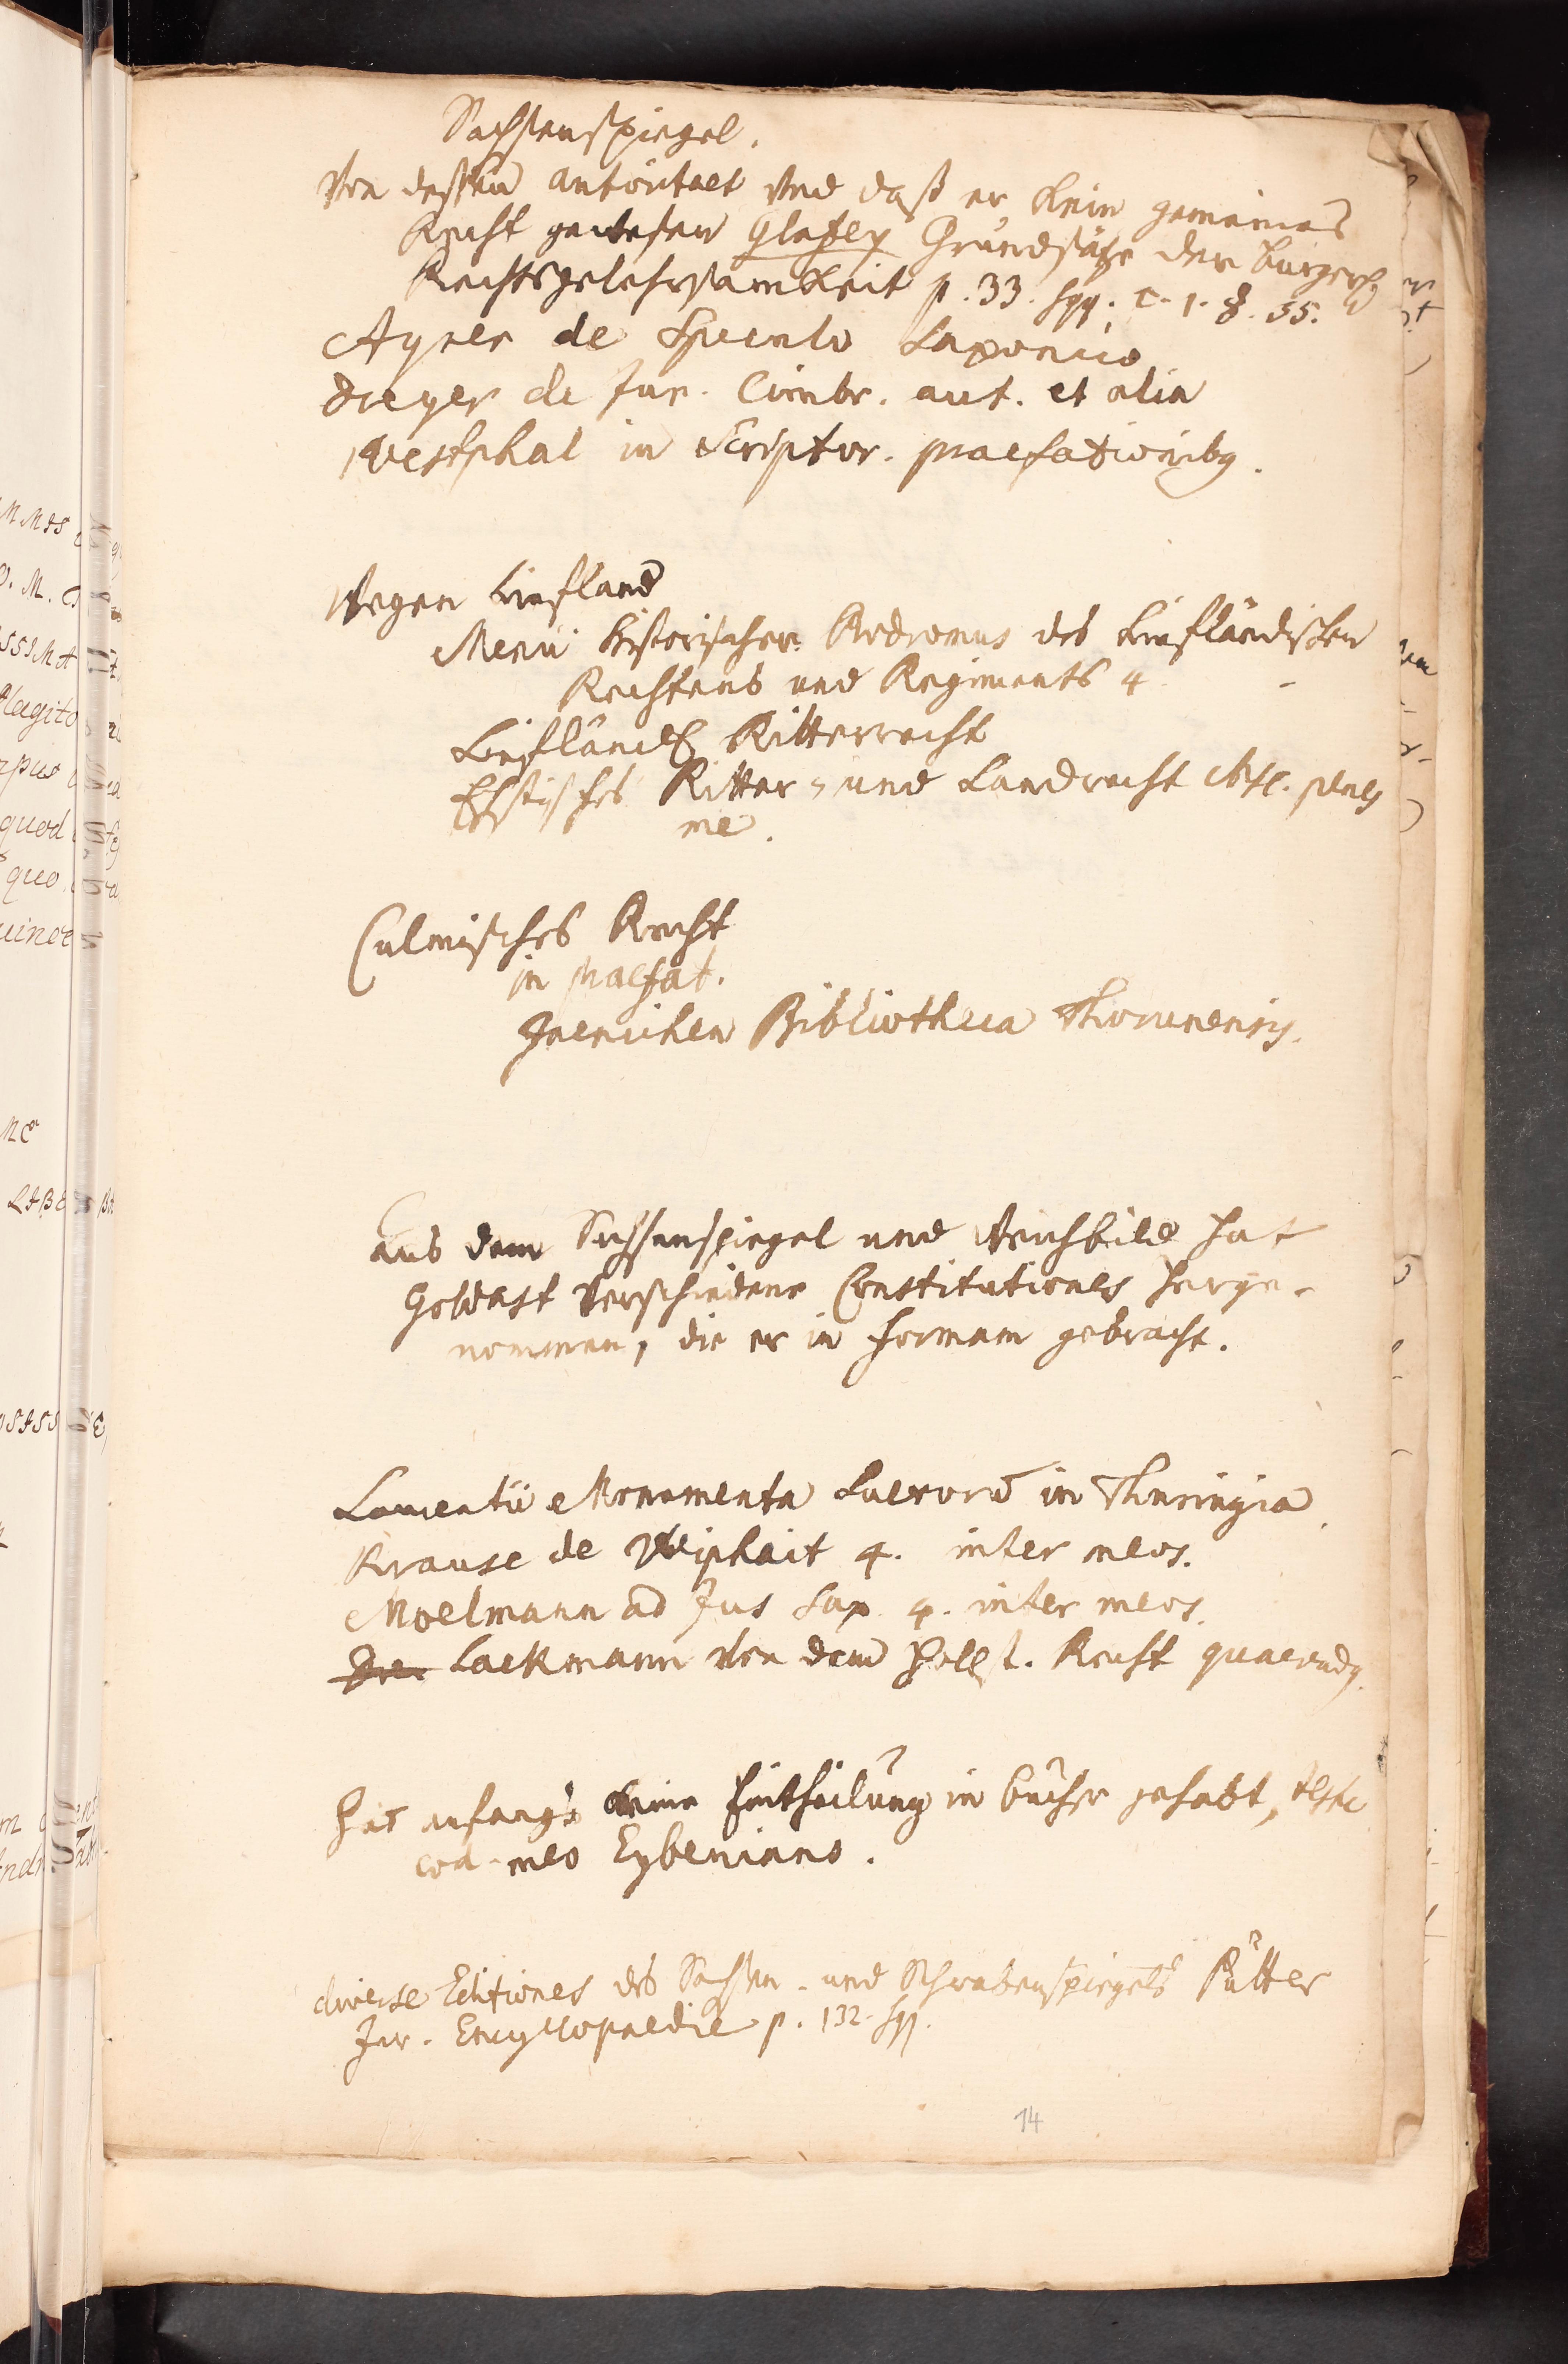 Sachsenspiegel.
Von dessen autoritaet und daß er kein gemeines
Recht gewesen Glafey Grundsäze der bürgerl.
Rechtsgelehrsamkeit p. 33. sqq. c. 1. §. 55.
Ayrer de Speculo Saxonico
Dreyer de Jur. Cimbr. ant. et alia
Westphal in Scriptor. praefationibg.
Wegen Liefland
Menii historischer Prodromus des Liefländischen
Rechtens und Regiments 4
Liefländl. Ritterrecht
Ehstisches Ritter- und Landrecht Msc. penes
me.
Culmisches Recht
in praefat.
Jaenichen Bibliotheca Thorunensis.
Aus dem Sachsenspiegel und Weichbild hat
Goldast verschiedene Constitutiones herge-
nommen, die er in formam gebracht.
Laurentii Monumenta Suevorū in Thuringia
Krause de Wiphait 4. inter meos.
Moelmann ad Jus Sax 4. inter meos.
Lackmann von dem Hollst. Recht quaerendg.
Hat anfangs keine Eintheilung in bücher gehabt, teste
cod. meo Eybeniano.
diverse Editiones des Sachsen- und Schwabenspiegels Pütter
Jur. Encyclopaedie p. 132. sqq.
14